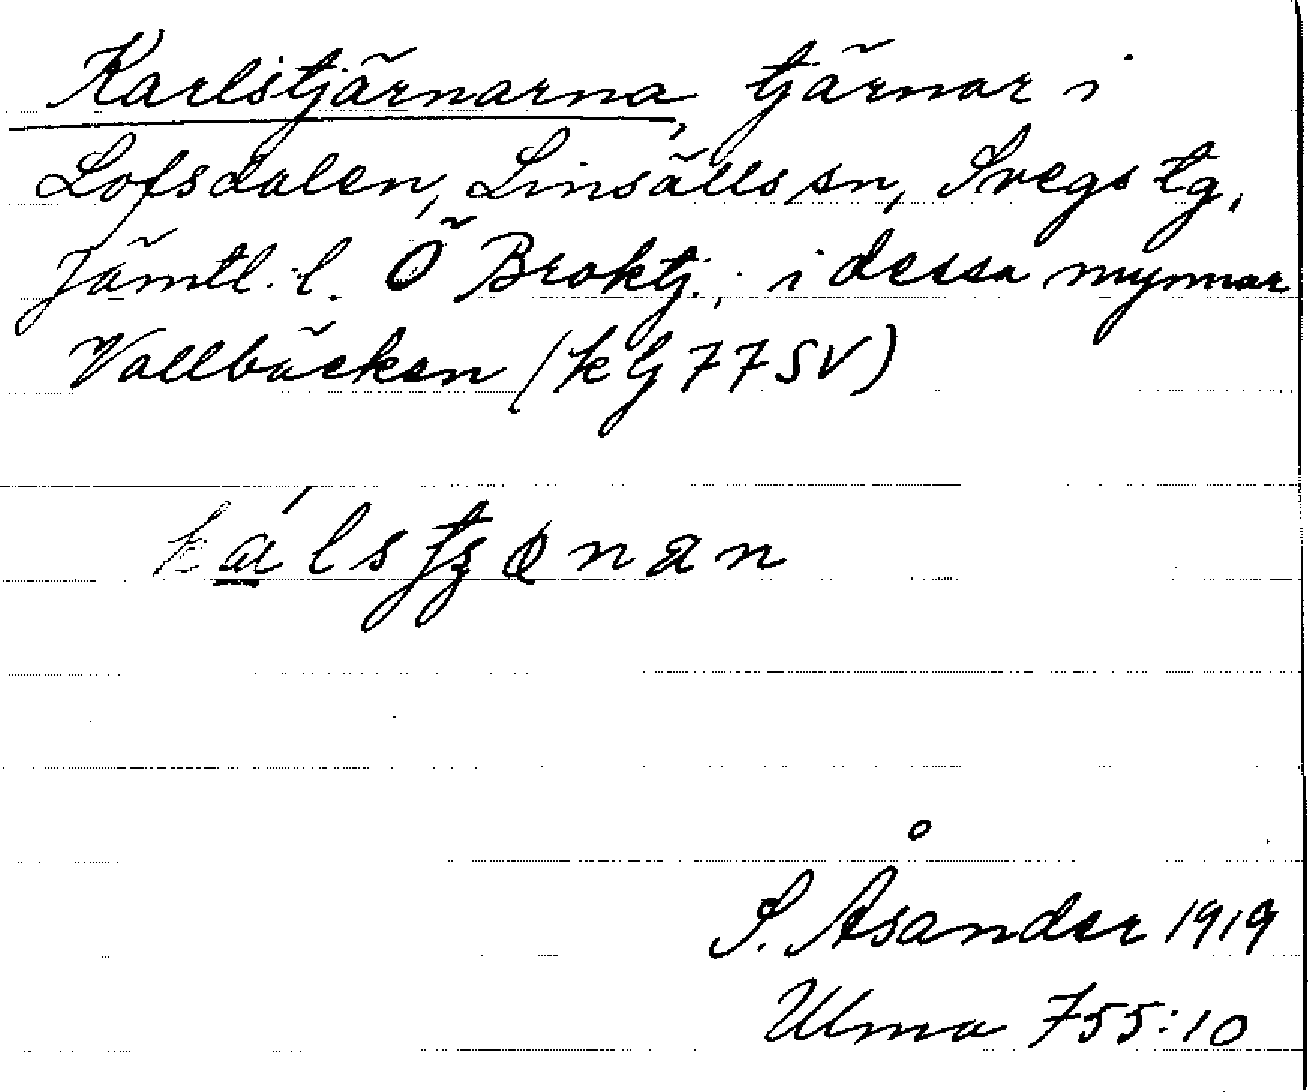 Karlstjärnarna, tjärnar i
Lofsdalen, Linsälls sn, Svegs tg,
Jämtl. l. Ö Broktj.; i dessa mynnar
Vallbäcken (k bj 77 SV)
S. Åsander 1919
Ulma 755:10